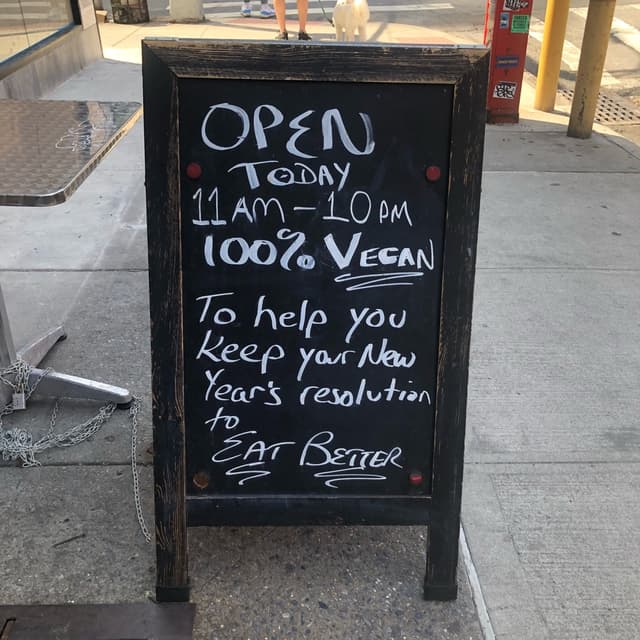 OPEN
TODAY
11AM – 10PM
100% VEGAN
To help you
keep your New
Year's resolution
to
EAT BETTER